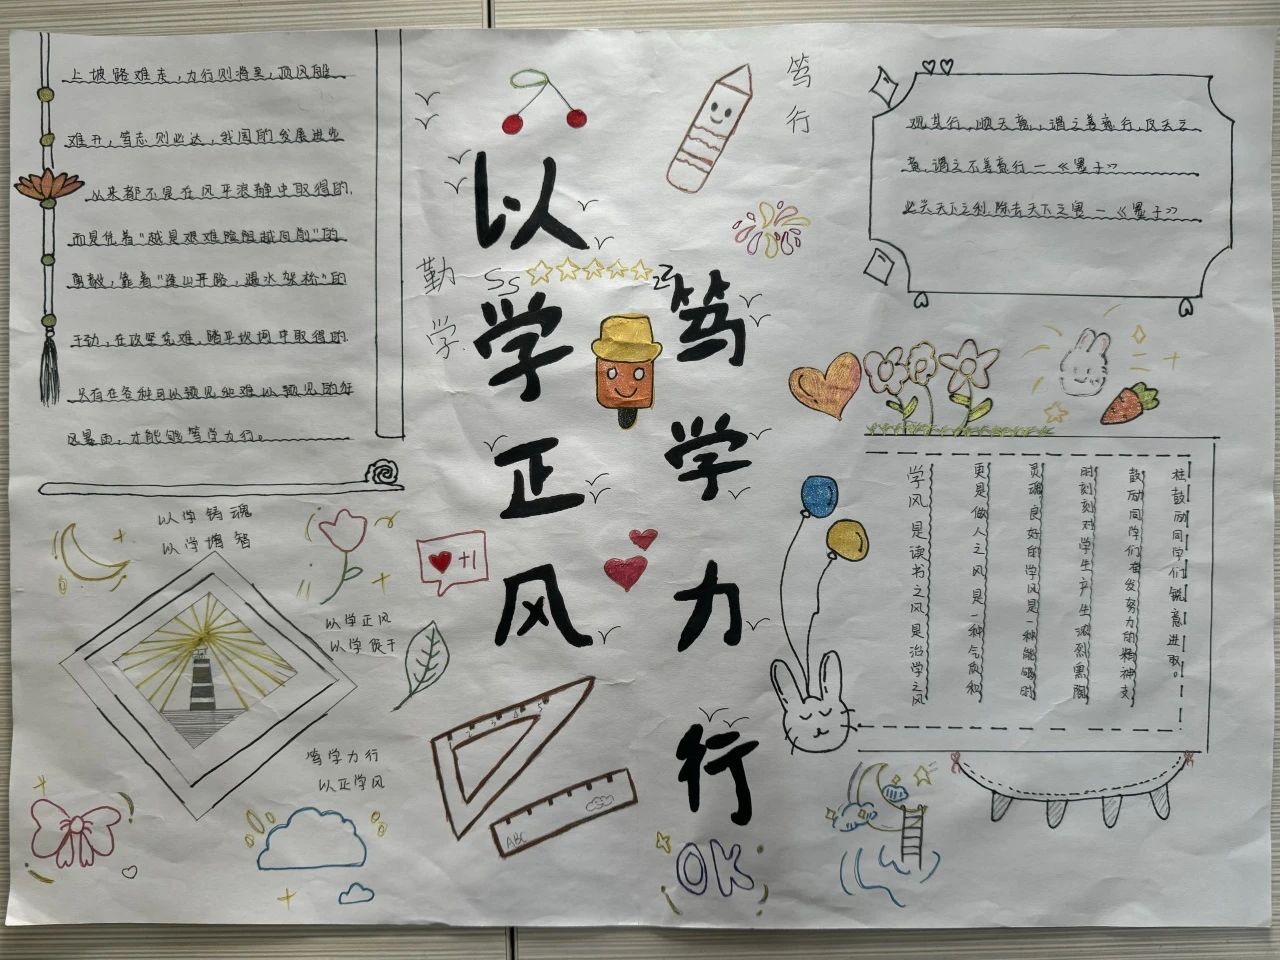 上坡路难走，力行则将至，顶风船
难开，笃志则必达，我国的发展进步
从来都不是在风平浪静中取得的，
而是凭着"越是艰难险阻越向前"的
勇毅，靠着"逢山开路，遇水架桥"的
干劲，在攻坚克难，踏平坎坷中取得的，
只有在各种可以预见和难以预见的狂
风暴雨，才能够笃学力行。
以学铸魂
以学增智
以学正风
以学促干
笃学力行
以正学风
勤学
+1
以学正风
笃学力行
笃行
SS
ZZ
2 3 4 5
ABC
OK
观其行，顺天意，谓之善意行，反天之
意，谓之不善意行－《墨子》
必兴天下之利，除去天下之害－《墨子》
学风是读书之风是治学之风
更是做人之风是一种气质和
灵魂良好的学风是一种能够时
时刻刻对学生产生浓烈熏陶
鼓励同学们奋发努力的精神支
柱鼓励同学们锐意进取。